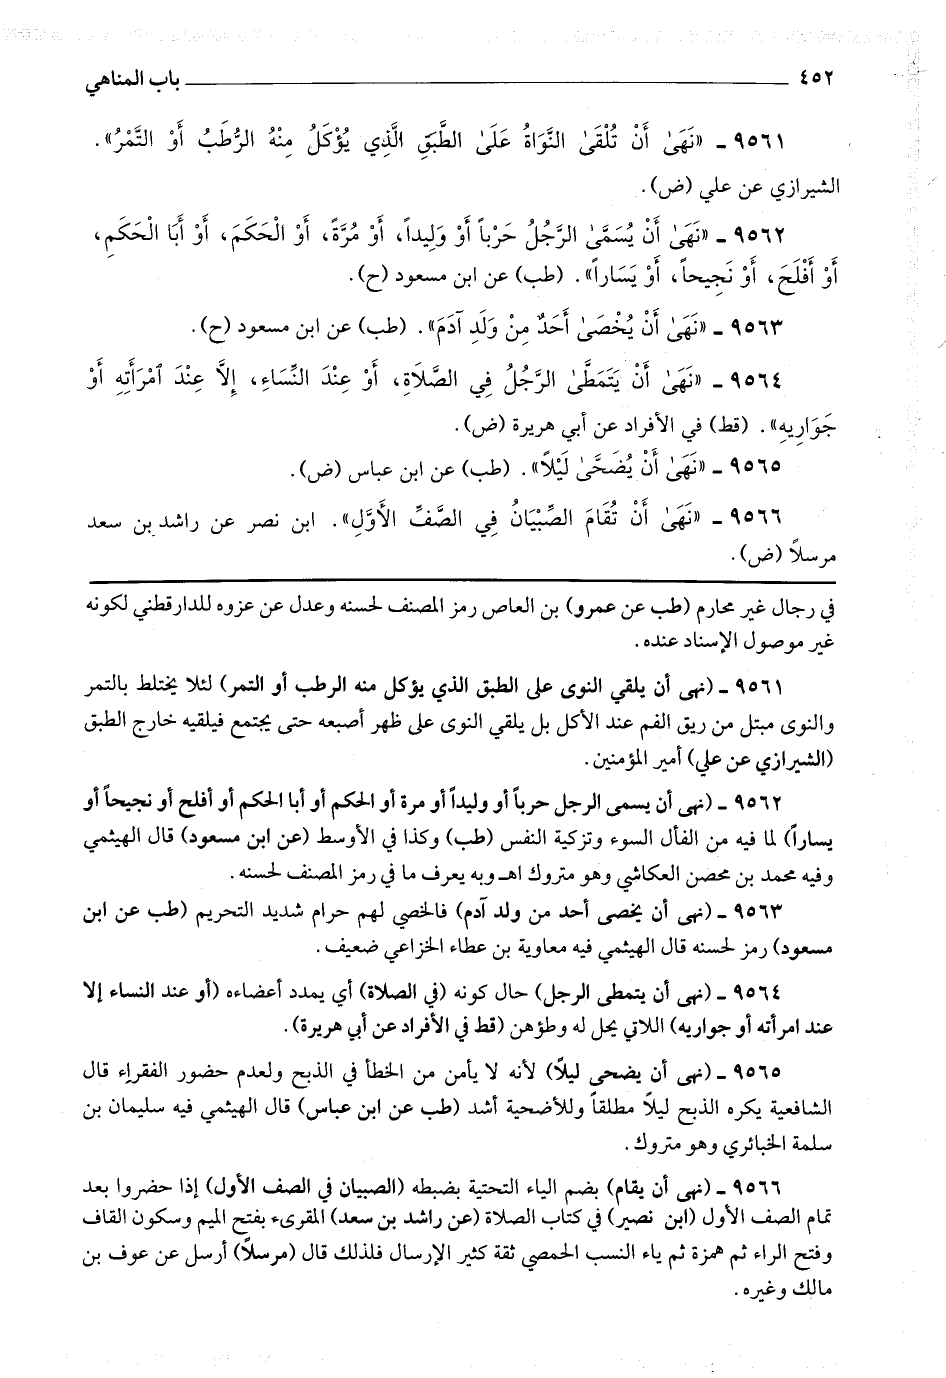 ٤٥٢ باب المناهي
٩٥٦١ ـ «نَهَىٰ أَنْ تُلْقَىٰ النَّوَاةُ عَلَىٰ الطَّبَقِ الَّذِي يُؤْكَلُ مِنْهُ الرُّطَبُ أَوْ التَّمْرُ».
الشيرازي عن علي (ض).
٩٥٦٢ ـ «نَهَىٰ أَنْ يُسَمَّىٰ الرَّجُلُ حَرْباً أَوْ وَلِيداً، أَوْ مُرَّةً، أَوْ الْحَكَمَ، أَوْ أَبَا الْحَكَمِ،
أَوْ أَفْلَحَ، أَوْ نَجِيحاً، أَوْ يَسَاراً». (طب) عن ابن مسعود (ح).
٩٥٦٣ ـ «نَهَىٰ أَنْ يُخْصَىٰ أَحَدٌ مِنْ وَلَدِ آدَمَ». (طب) عن ابن مسعود (ح).
٩٥٦٤ ـ «نَهَىٰ أَنْ يَتَمَطَّىٰ الرَّجُلُ فِي الصَّلَاةِ، أَوْ عِنْدَ النِّسَاءِ، إِلَّا عِنْدَ امْرَأَتِهِ أَوْ
جَوَارِيهِ». (قط) في الأفراد عن أبي هريرة (ض).
٩٥٦٥ ـ «نَهَىٰ أَنْ يُضَحَّىٰ لَيْلاً». (طب) عن ابن عباس (ض).
٩٥٦٦ ـ «نَهَىٰ أَنْ تُقَامَ الصِّبْيَانُ فِي الصَّفِّ الأَوَّلِ». ابن نصر عن راشد بن سعد
مرسلاً (ض).
في رجال غير محارم (طب عن عمرو) بن العاص رمز المصنف لحسنه وعدل عن عزوه للدارقطني لكونه
غير موصول الإسناد عنده.
٩٥٦١ ـ (نهى أن يلقي النوى على الطبق الذي يؤكل منه الرطب أو التمر) لئلا يختلط بالتمر
والنوى مبتل من ريق الفم عند الأكل بل يلقي النوى على ظهر أصبعه حتى يجتمع فيلقيه خارج الطبق
(الشيرازي عن علي) أمير المؤمنين.
٩٥٦٢ ـ (نهى أن يسمى الرجل حرباً أو وليداً أو مرة أو الحكم أو أبا الحكم أو أفلح أو نجيحاً أو
يساراً) لما فيه من الفأل السوء وتزكية النفس (طب) وكذا في الأوسط (عن ابن مسعود) قال الهيثمي
وفيه محمد بن محصن العكاشي وهو متروك اهـ وبه يعرف ما في رمز المصنف لحسنه.
٩٥٦٣ ـ (نهى أن يخصى أحد من ولد آدم) فالخصي لهم حرام شديد التحريم (طب عن ابن
مسعود) رمز لحسنه قال الهيثمي فيه معاوية بن عطاء الخزاعي ضعيف.
٩٥٦٤ ـ (نهى أن يتمطى الرجل) حال كونه (في الصلاة) أي يمدد أعضاءه (أو عند النساء إلا
عند امرأته أو جواريه) اللاتي يحل له وطؤهن (قط في الأفراد عن أبي هريرة).
٩٥٦٥ ـ (نهى أن يضحى ليلاً) لأنه لا يأمن من الخطأ في الذبح ولعدم حضور الفقراء قال
الشافعية يكره الذبح ليلاً مطلقاً وللأضحية أشد (طب عن ابن عباس) قال الهيثمي فيه سليمان بن
سلمة الخبائري وهو متروك.
٩٥٦٦ ـ (نهى أن يقام) بضم الياء التحتية بضبطه (الصبيان في الصف الأول) إذا حضروا بعد
تمام الصف الأول (ابن نصير) في كتاب الصلاة (عن راشد بن سعد) المقرىء بفتح الميم وسكون القاف
وفتح الراء ثم همزة ثم ياء النسب الحمصي ثقة كثير الإرسال فلذلك قال (مرسلاً) أرسل عن عوف بن
مالك وغيره.